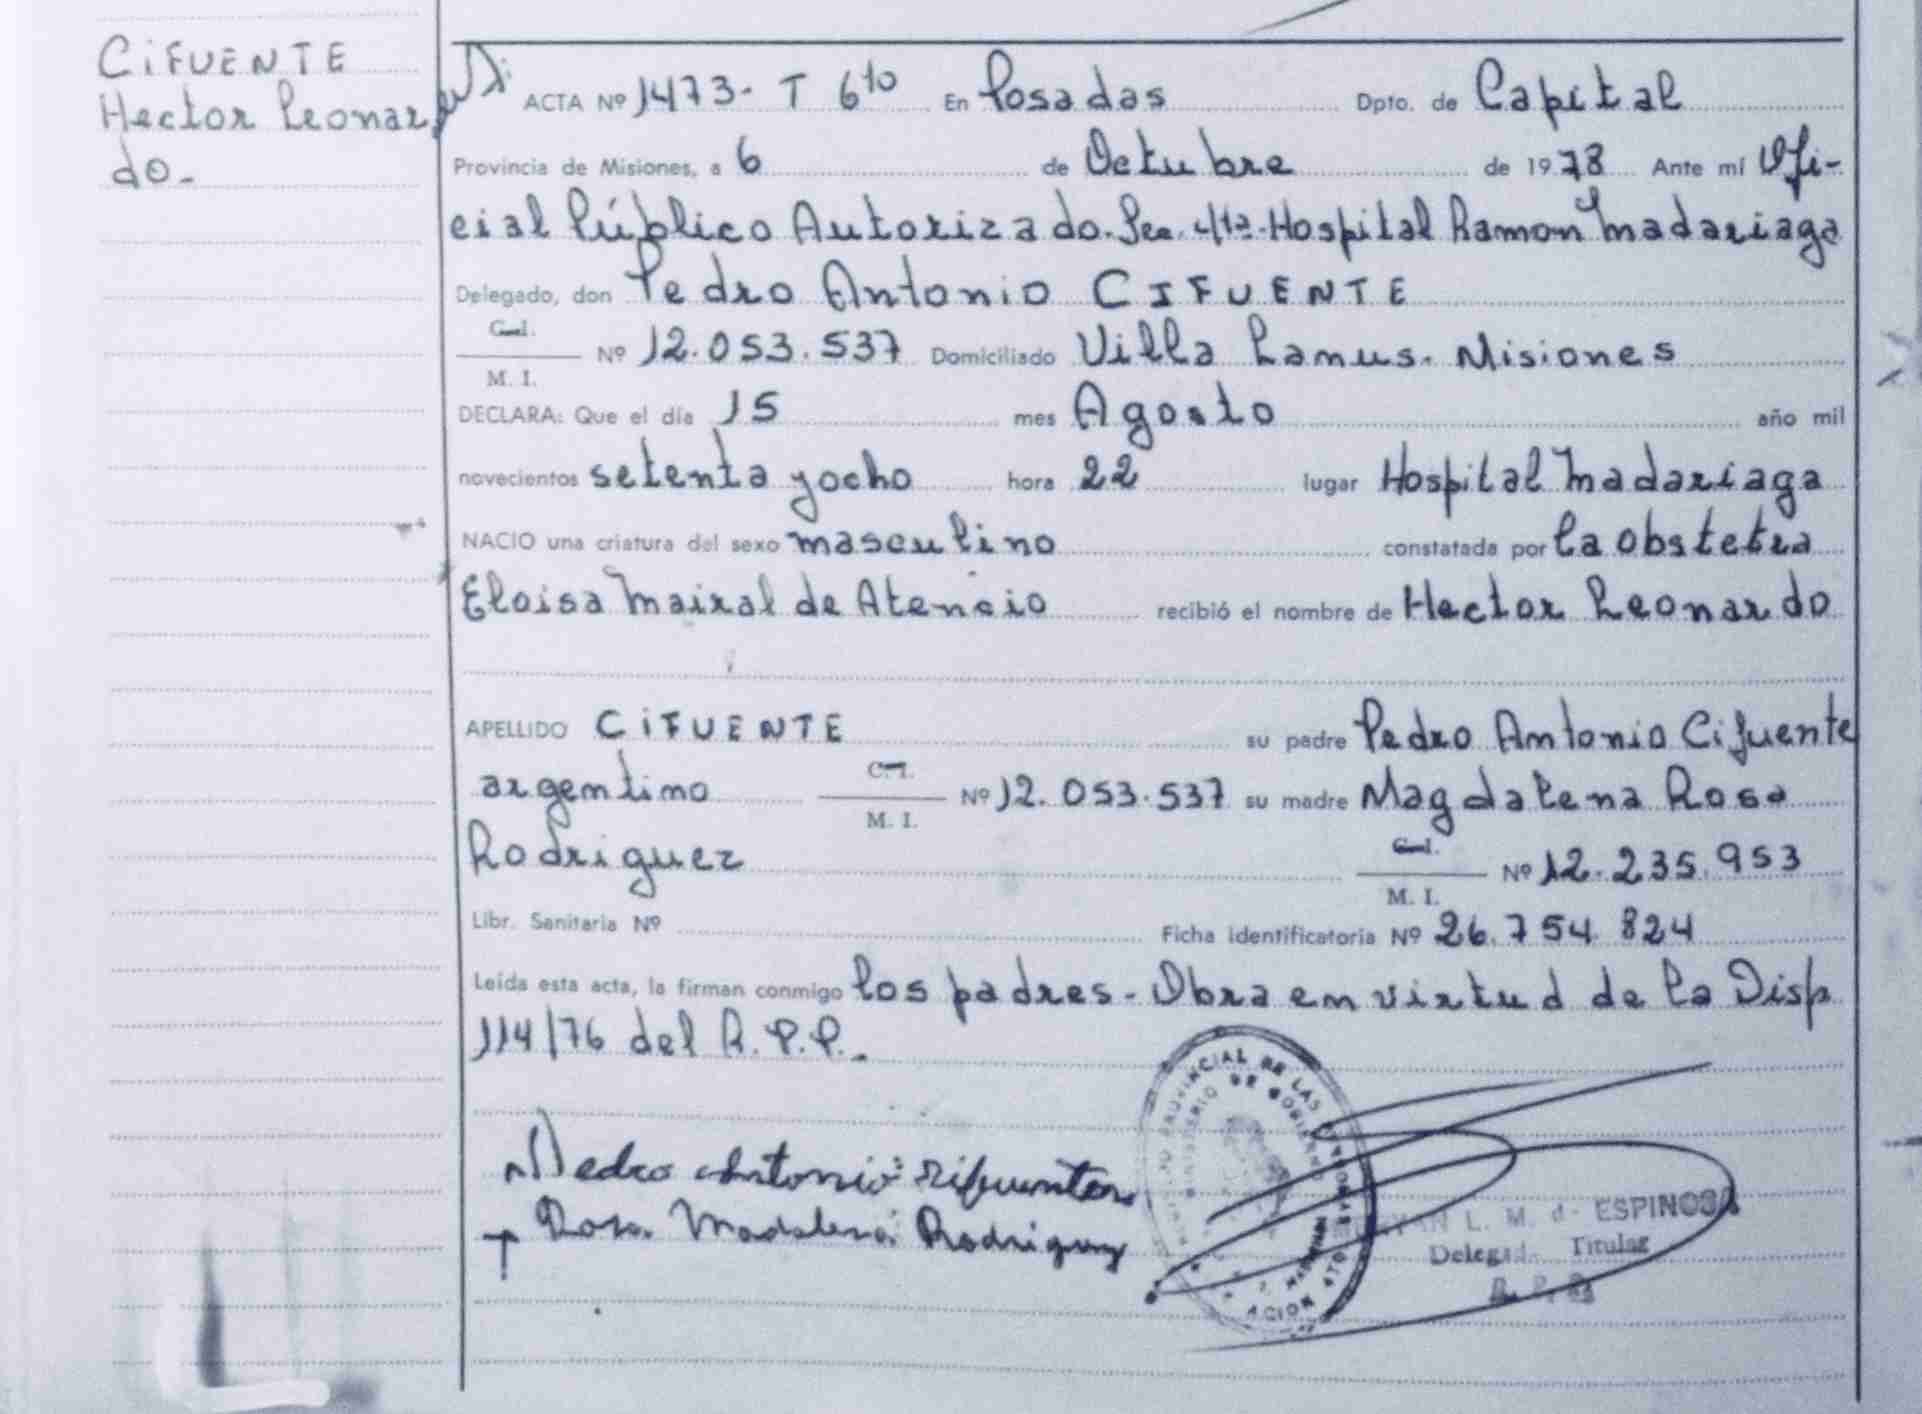 CIFUENTE
Hector Leonar
do.-
ACTA Nº 1473- T 6to En Posadas Dpto. de Capital
Provincia de Misiones, a 6 de Octubre de 1978 Ante mí Ofi-
cial Público Autorizado. Sec. 4ta. Hospital Ramon Madariaga
Delegado, don Pedro Antonio CIFUENTE
C. I.
Nº 12.053.537 Domiciliado Villa Lanus. Misiones
M. I.
DECLARA: Que el día 15 mes Agosto año mil
novecientos setenta y ocho hora 22 lugar Hospital Madariaga
NACIO una criatura del sexo masculino constatada por la obstetra
Eloisa Mairal de Atencio recibió el nombre de Hector Leonardo
APELLIDO CIFUENTE su padre Pedro Antonio Cifuente
C. I.
argentino Nº 12.053.537 su madre Magdalena Rosa
M. I.
C. I.
Rodriguez Nº 12.235.953
M. I.
Libr. Sanitaria Nº Ficha identificatoria Nº 26.754.824
Leída esta acta, la firman conmigo los padres - Obra en virtud de la Disp
114/76 del R.P.P.-
Pedro Antonio Cifuente
Rosa Madalena Rodriguez
PROVINCIAL DE LAS
MINISTERIO DE GOBIERNO
L. M. d. ESPINOSA
Delegad. Titular